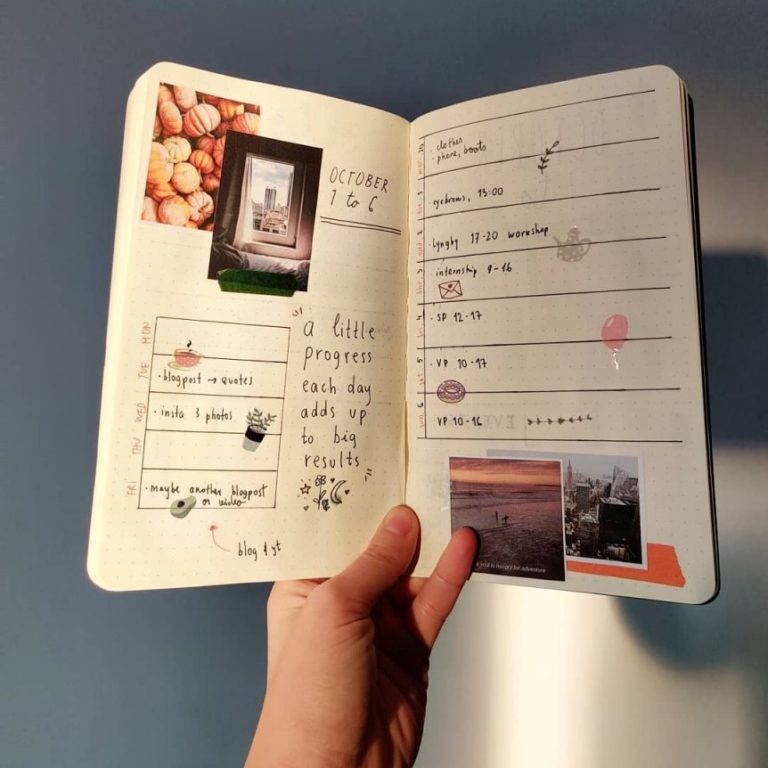 OCTOBER
1 to 6
MON
TUE
• blogpost → quotes
WED
• insta 3 photos
THU
FRI
• maybe another blogpost
or video
blog & yt
"a little
progress
each day
adds up
to big
results"
• clothes
• phone, boots
eyebrows, 13:00
lyngby 17-20 workshop
internship 9-16
• SP 12-17
• VP 10-17
• VP 10-16
soul is hungry for adventure